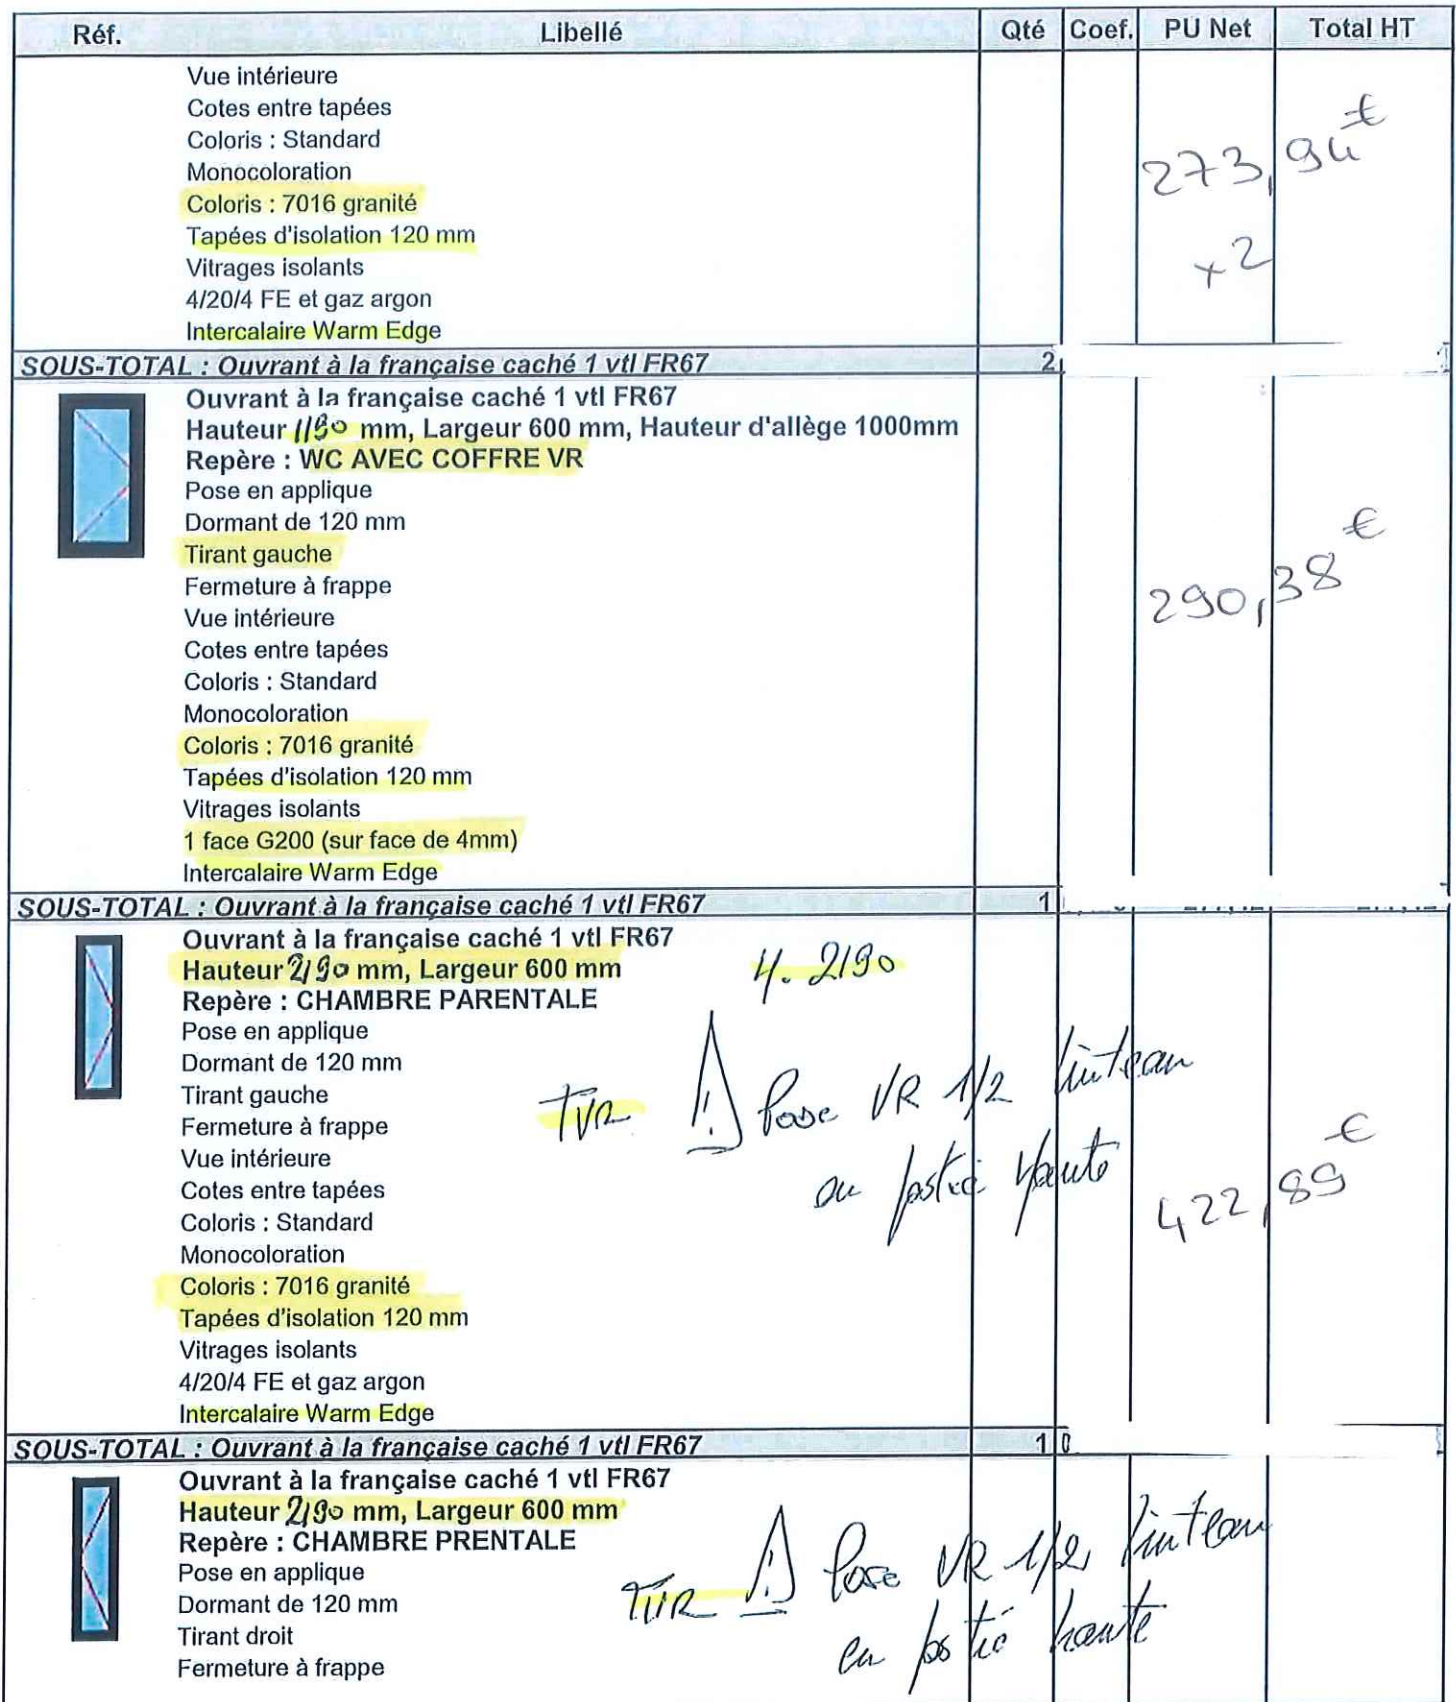 Réf. Libellé Qté Coef. PU Net Total HT
Vue intérieure
Cotes entre tapées
Coloris : Standard
Monocoloration
Coloris : 7016 granité
Tapées d'isolation 120 mm
Vitrages isolants
4/20/4 FE et gaz argon
Intercalaire Warm Edge
273,94 €
x2
SOUS-TOTAL : Ouvrant à la française caché 1 vtl FR67 2
Ouvrant à la française caché 1 vtl FR67
Hauteur 1190 mm, Largeur 600 mm, Hauteur d'allège 1000mm
Repère : WC AVEC COFFRE VR
Pose en applique
Dormant de 120 mm
Tirant gauche
Fermeture à frappe
Vue intérieure
Cotes entre tapées
Coloris : Standard
Monocoloration
Coloris : 7016 granité
Tapées d'isolation 120 mm
Vitrages isolants
1 face G200 (sur face de 4mm)
Intercalaire Warm Edge
290,38 €
SOUS-TOTAL : Ouvrant à la française caché 1 vtl FR67 1
Ouvrant à la française caché 1 vtl FR67
Hauteur 2190 mm, Largeur 600 mm
H. 2190
Repère : CHAMBRE PARENTALE
Pose en applique
Dormant de 120 mm
Tirant gauche
Fermeture à frappe
Vue intérieure
Cotes entre tapées
Coloris : Standard
Monocoloration
Coloris : 7016 granité
Tapées d'isolation 120 mm
Vitrages isolants
4/20/4 FE et gaz argon
Intercalaire Warm Edge
TVR ! Pose VR 1/2 linteau
haute
422,89 €
SOUS-TOTAL : Ouvrant à la française caché 1 vtl FR67 1 0
Ouvrant à la française caché 1 vtl FR67
Hauteur 2190 mm, Largeur 600 mm
Repère : CHAMBRE PRENTALE
Pose en applique
Dormant de 120 mm
Tirant droit
Fermeture à frappe
TVR ! Pose VR 1/2 linteau
en haute